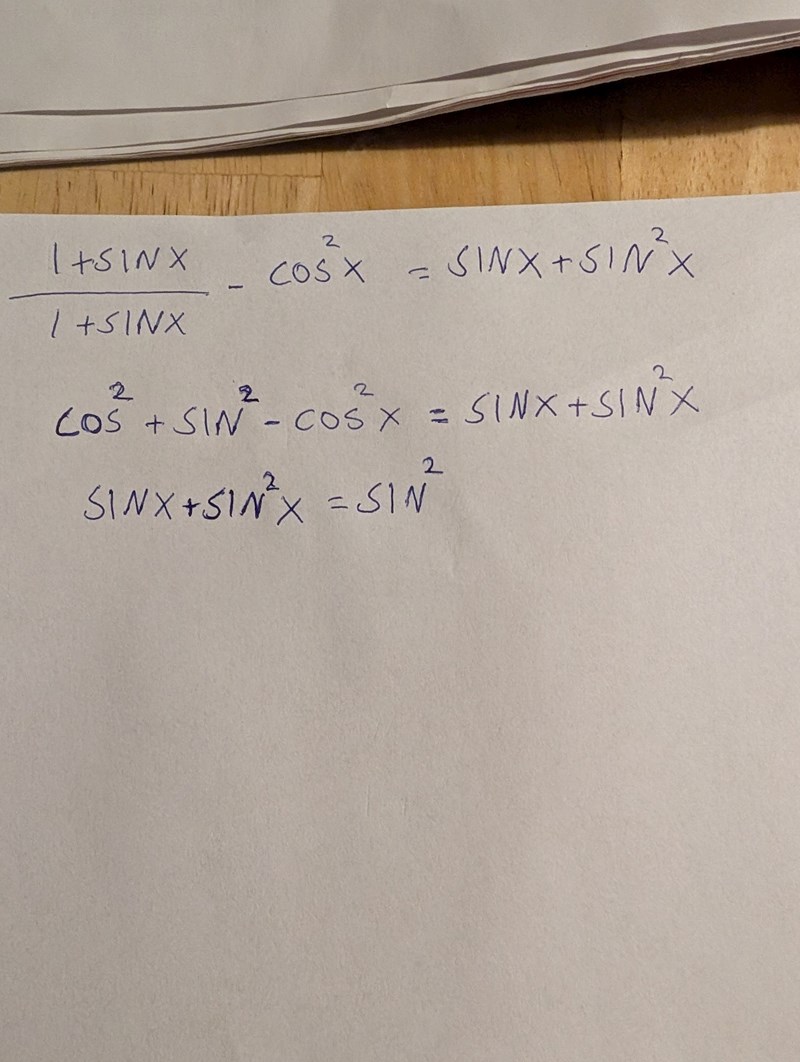 1+SINX / 1+SINX - COS²X = SINX+SIN²X
COS²+SIN²-COS²X = SINX+SIN²X
SINX+SIN²X = SIN²